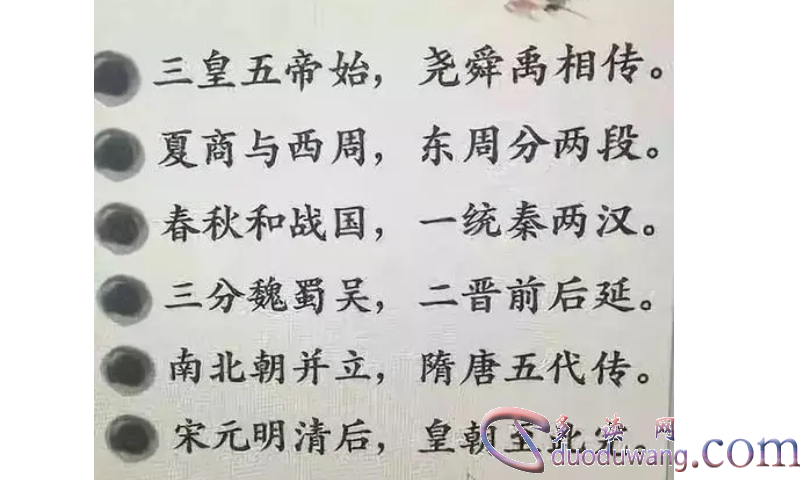 三皇五帝始，尧舜禹相传。
夏商与西周，东周分两段。
春秋和战国，一统秦两汉。
三分魏蜀吴，二晋前后延。
南北朝并立，隋唐五代传。
宋元明清后，皇朝至此完。
多读网
duoduwang.com